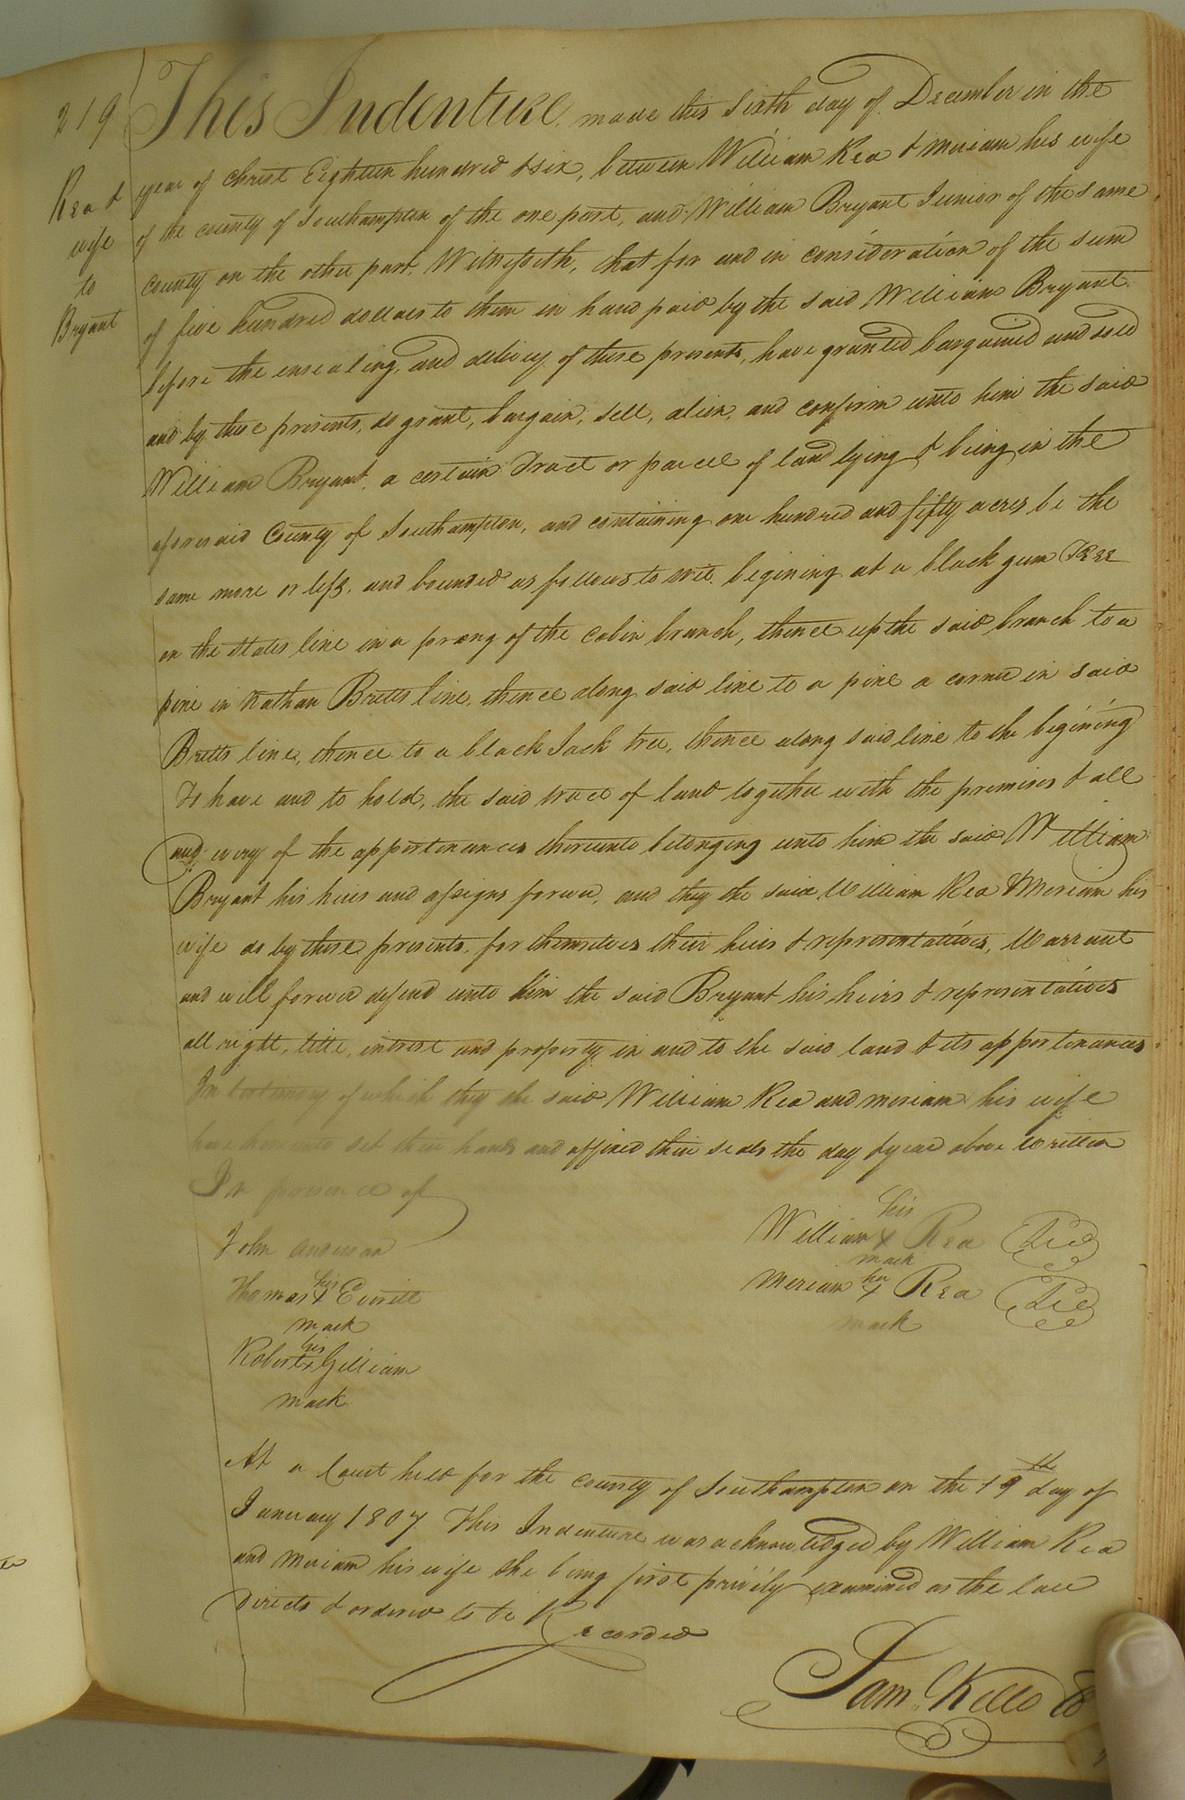 219
Rea &
wife
to
Bryant
This Indenture made this sixth day of December in the
year of christ Eighteen hundred & six, between William Rea & Miriam his wife
of the county of Southampton of the one part, and William Bryant Junior of the same
county on the other part. Witnesseth, that for and in consideration of the sum
of five hundred dollars to them in hand paid by the said William Bryant
before the ensealing, and delivery of these presents, have granted bargained and sold
and by these presents, do grant, bargain, sell, alien, and confirm unto him the said
William Bryant, a certain Tract or parcel of land lying & being in the
aforesaid County of Southampton, and containing one hundred and fifty acres be the
same more or less, and bounded as follows to wit. begining at a black gum Tree
on the states line in a prong of the cabin branch, thence up the said branch to a
pine in Nathan Bretts line, thence along said line to a pine a corner in said
Bretts line, thence to a black Jack tree, thence along said line to the begining
To have and to hold, the said tract of land together with the premises & all
and every of the appertinances thereunto belonging unto him the said William
Bryant his heirs and assigns forever, and they the said William Rea & Meriam his
wife do by these presents, for themselves their heirs & representatives, Warrant
and will forever defend unto him the said Bryant his heirs & representatives
all right, title, intrest and property in and to the said land & its appertinances
In testimony of which they the said William Rea and Miriam his wife
have hereunto set their hands and affixed their seals the day & year above Written
In presence of
John Anderson
Thomas his x Everitt
mark
Robert his x Gilliam
mark
his
William x Rea Seal
mark
Meriam her x Rea Seal
mark
At a Court held for the county of Southampton on the 19th day of
January 1807 This Indenture was acknowledged by William Rea
and Miriam his wife she being first privily examined as the law
Directs & ordered to be Recorded
Sam. Kello